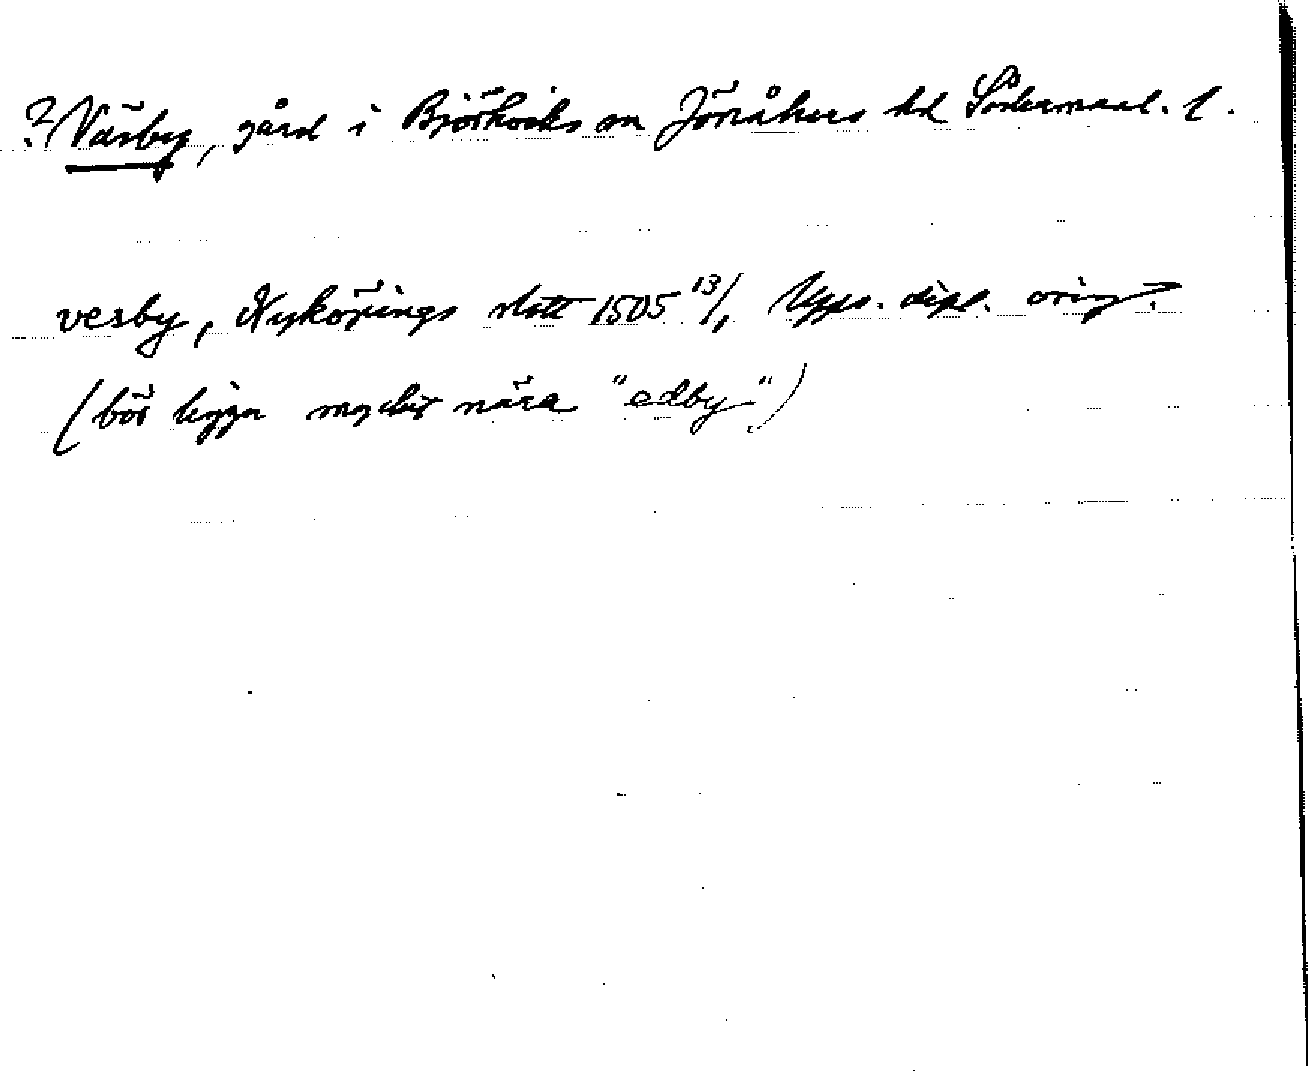 ? Väsby, gård i Björkviks sn Jönåkers hd Södermanl. l.
vesby, Nyköpings slott 1505 13/1 Upps. dipl. orig.
(bör ligga mycket nära "edby")